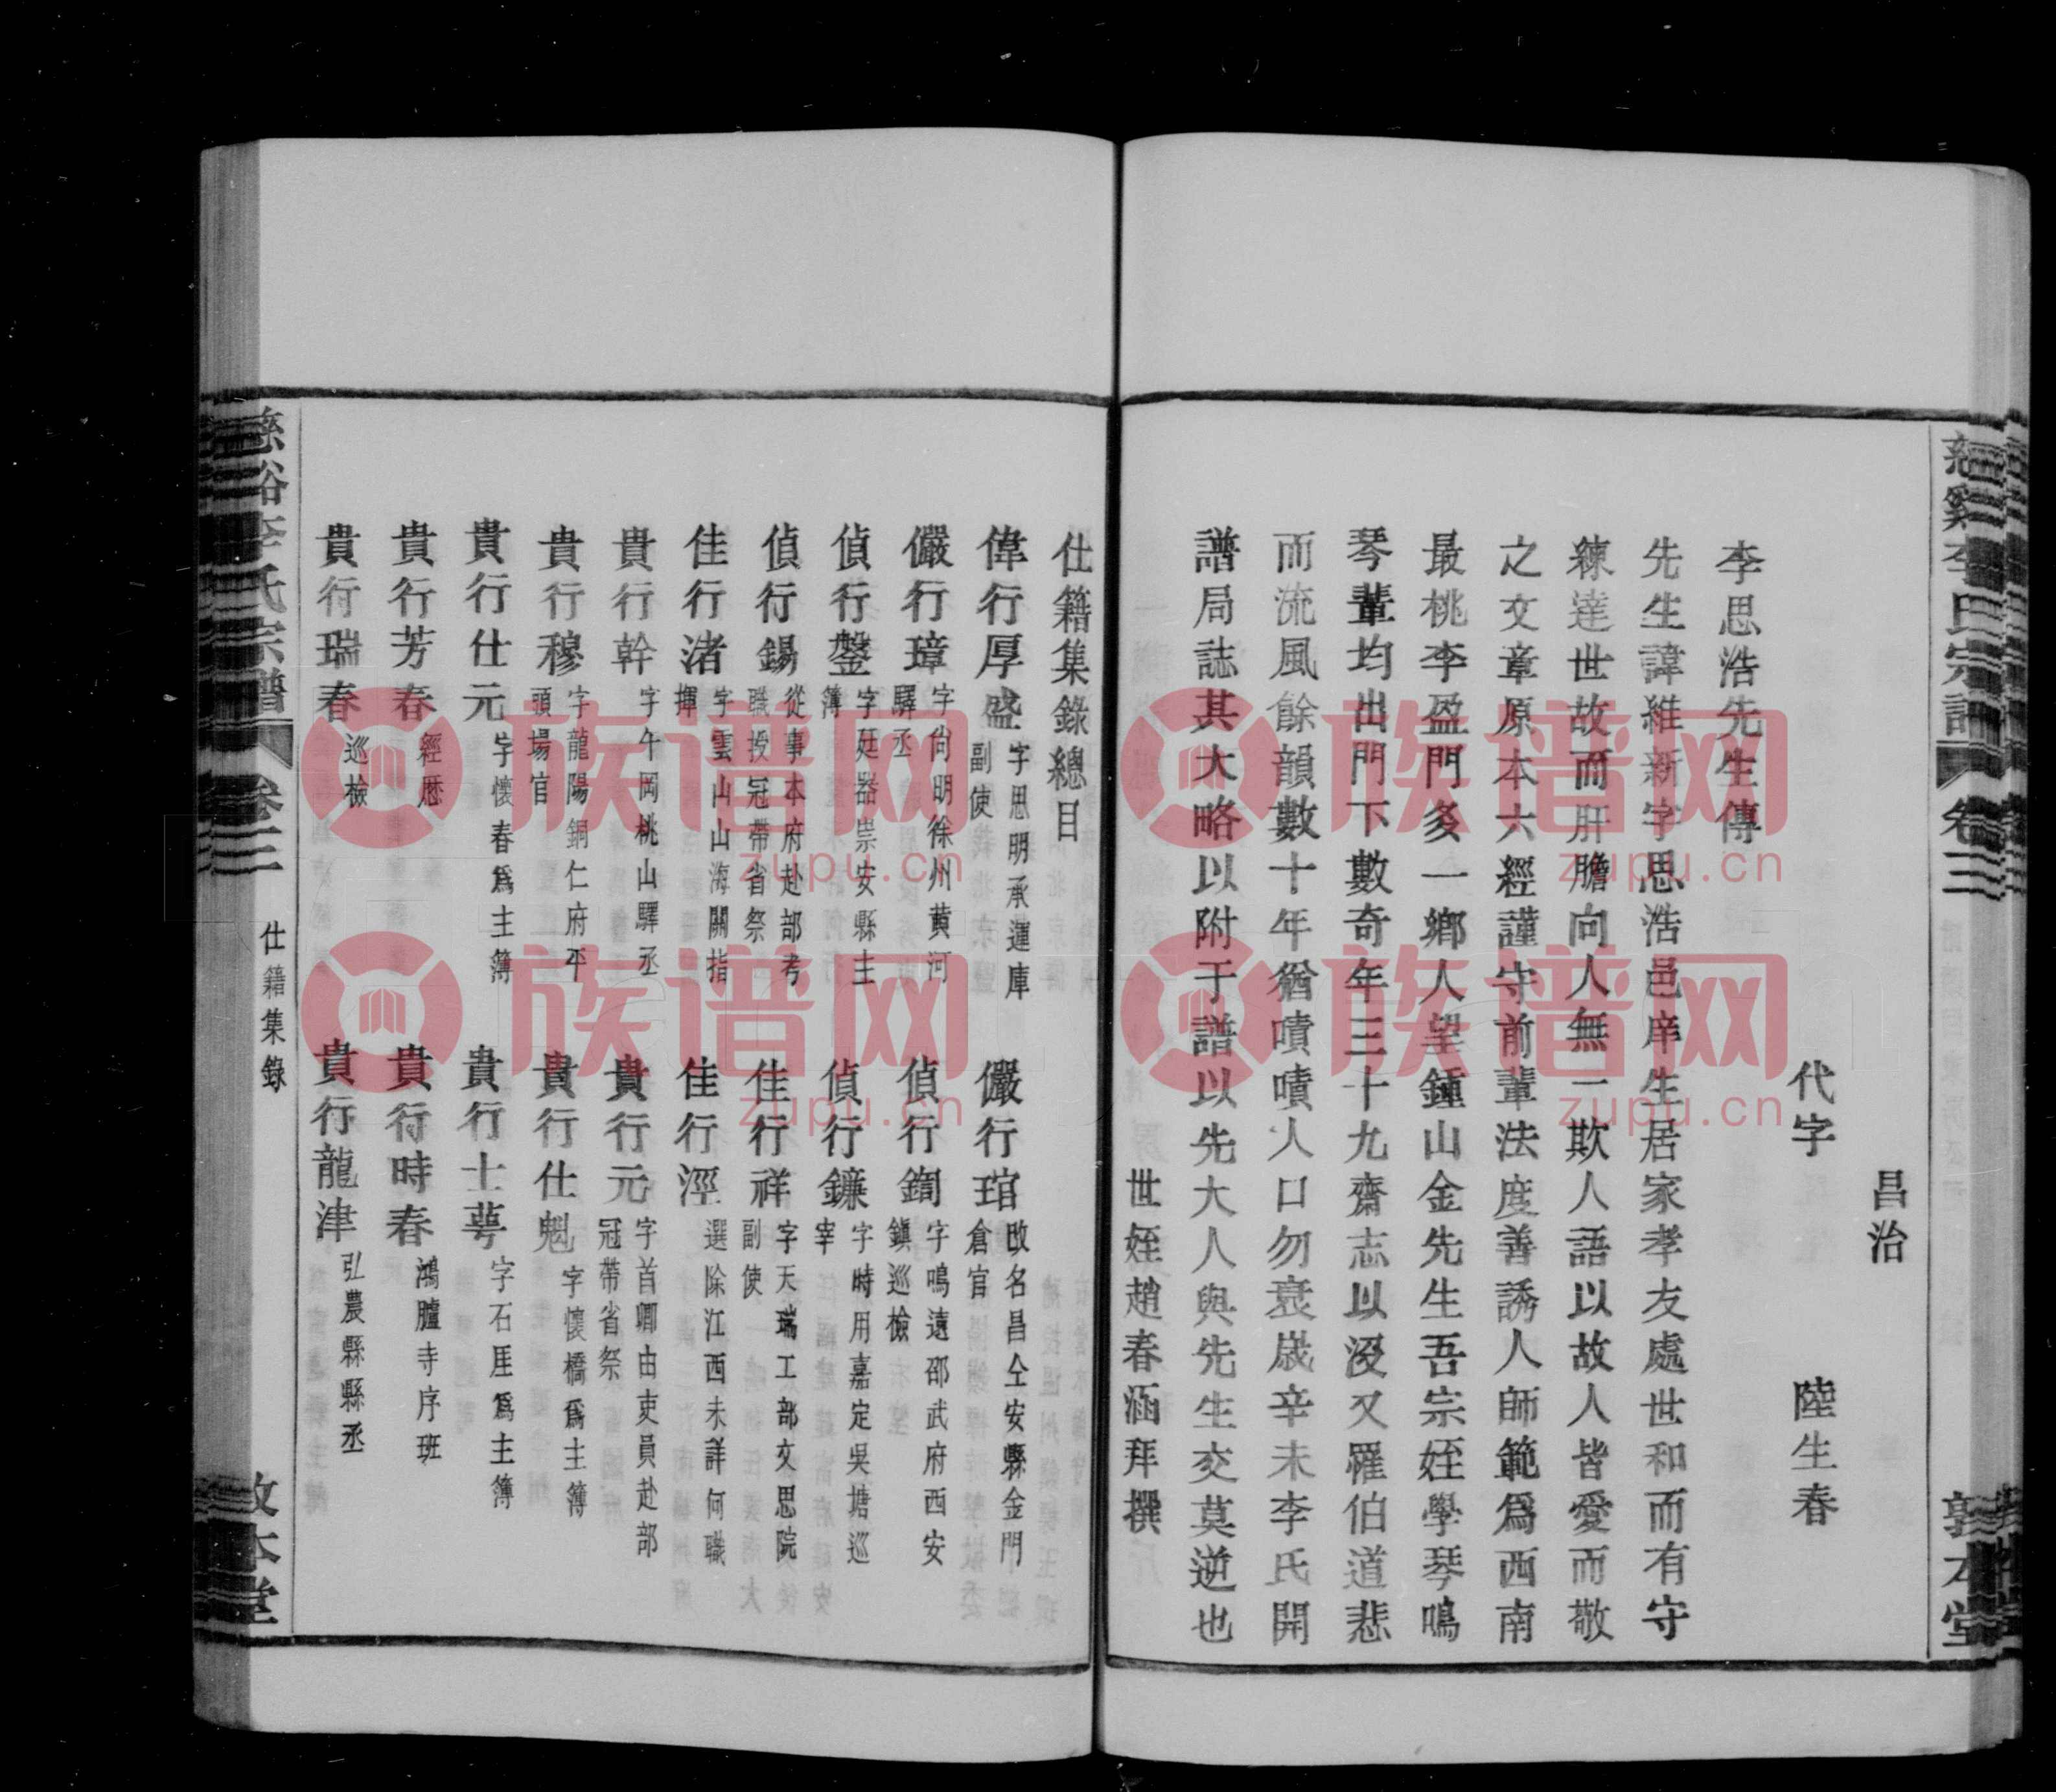 慈谿李氏宗譜 卷三 敦本堂
昌治
代字 陸生春
李思浩先生傳
先生諱維新字思浩邑庠生居家孝友處世和而有守
練達世故而肝膽向人無一欺人語以故人皆愛而敬
之文章原本六經謹守前輩法度善誘人師範爲西南
最桃李盈門多一鄉人望鍾山金先生吾宗姪學琴鳴
琴輩均出門下數奇年三十九齋志以歿又罹伯道悲
而流風餘韻數十年猶嘖嘖人口勿衰歲辛未李氏開
譜局誌其大略以附于譜以先大人與先生交莫逆也
世姪趙春涵拜撰
仕籍集錄總目
偉行厚盛 字思明承運庫副使 儼行琯 改名昌仝安縣金門倉官
儼行璋 字尚明徐州黄河驛丞 偵行鍧 字鳴遠邵武府西安鎮巡檢
偵行鏧 字廷器崇安縣主簿 偵行鐮 字時用嘉定吳塘巡宰
偵行錫 從事本府赴部考職授冠帶省祭 佳行祥 字天瑞工部文思院副使
佳行渚 字雲山山海關指揮 佳行涇 選除江西未詳何職
貴行幹 字午岡桃山驛丞 貴行元 字首卿由吏員赴部冠帶省祭
貴行穆 字龍陽銅仁府平頭場官 貴行仕魁 字懷橋爲主簿
貴行仕元 字懷春爲主簿 貴行士蕚 字石厓爲主簿
貴行芳春 經歷 貴行時春 鴻臚寺序班
貴行瑞春 巡檢 貴行龍津 弘農縣縣丞
慈谿李氏宗譜 卷三 仕籍集錄 敦本堂
族谱网
zupu.cn
族谱网
zupu.cn
族谱网
zupu.cn
族谱网
zupu.cn